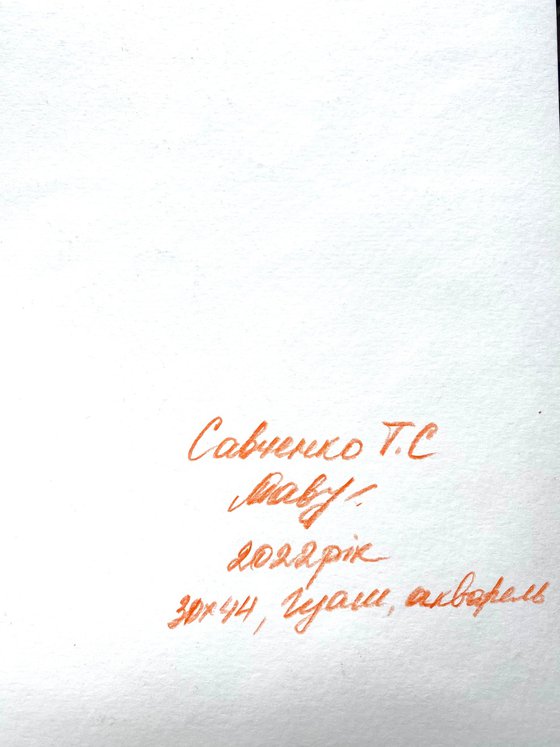 Савченко Т.С
2022рік
30х44, гуаш, акварель